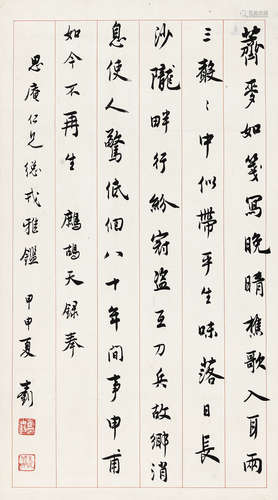 薺麥如箋寫晚晴樵歌入耳兩
三聲〻中似帶平生味落日長
沙隴畔行紛寇盜互刀兵故鄉消
息使人驚低佪八十年間事申甫
如今不再生 鷓鴣天錄奉
思庵仁兄總戎雅鑑 甲申夏